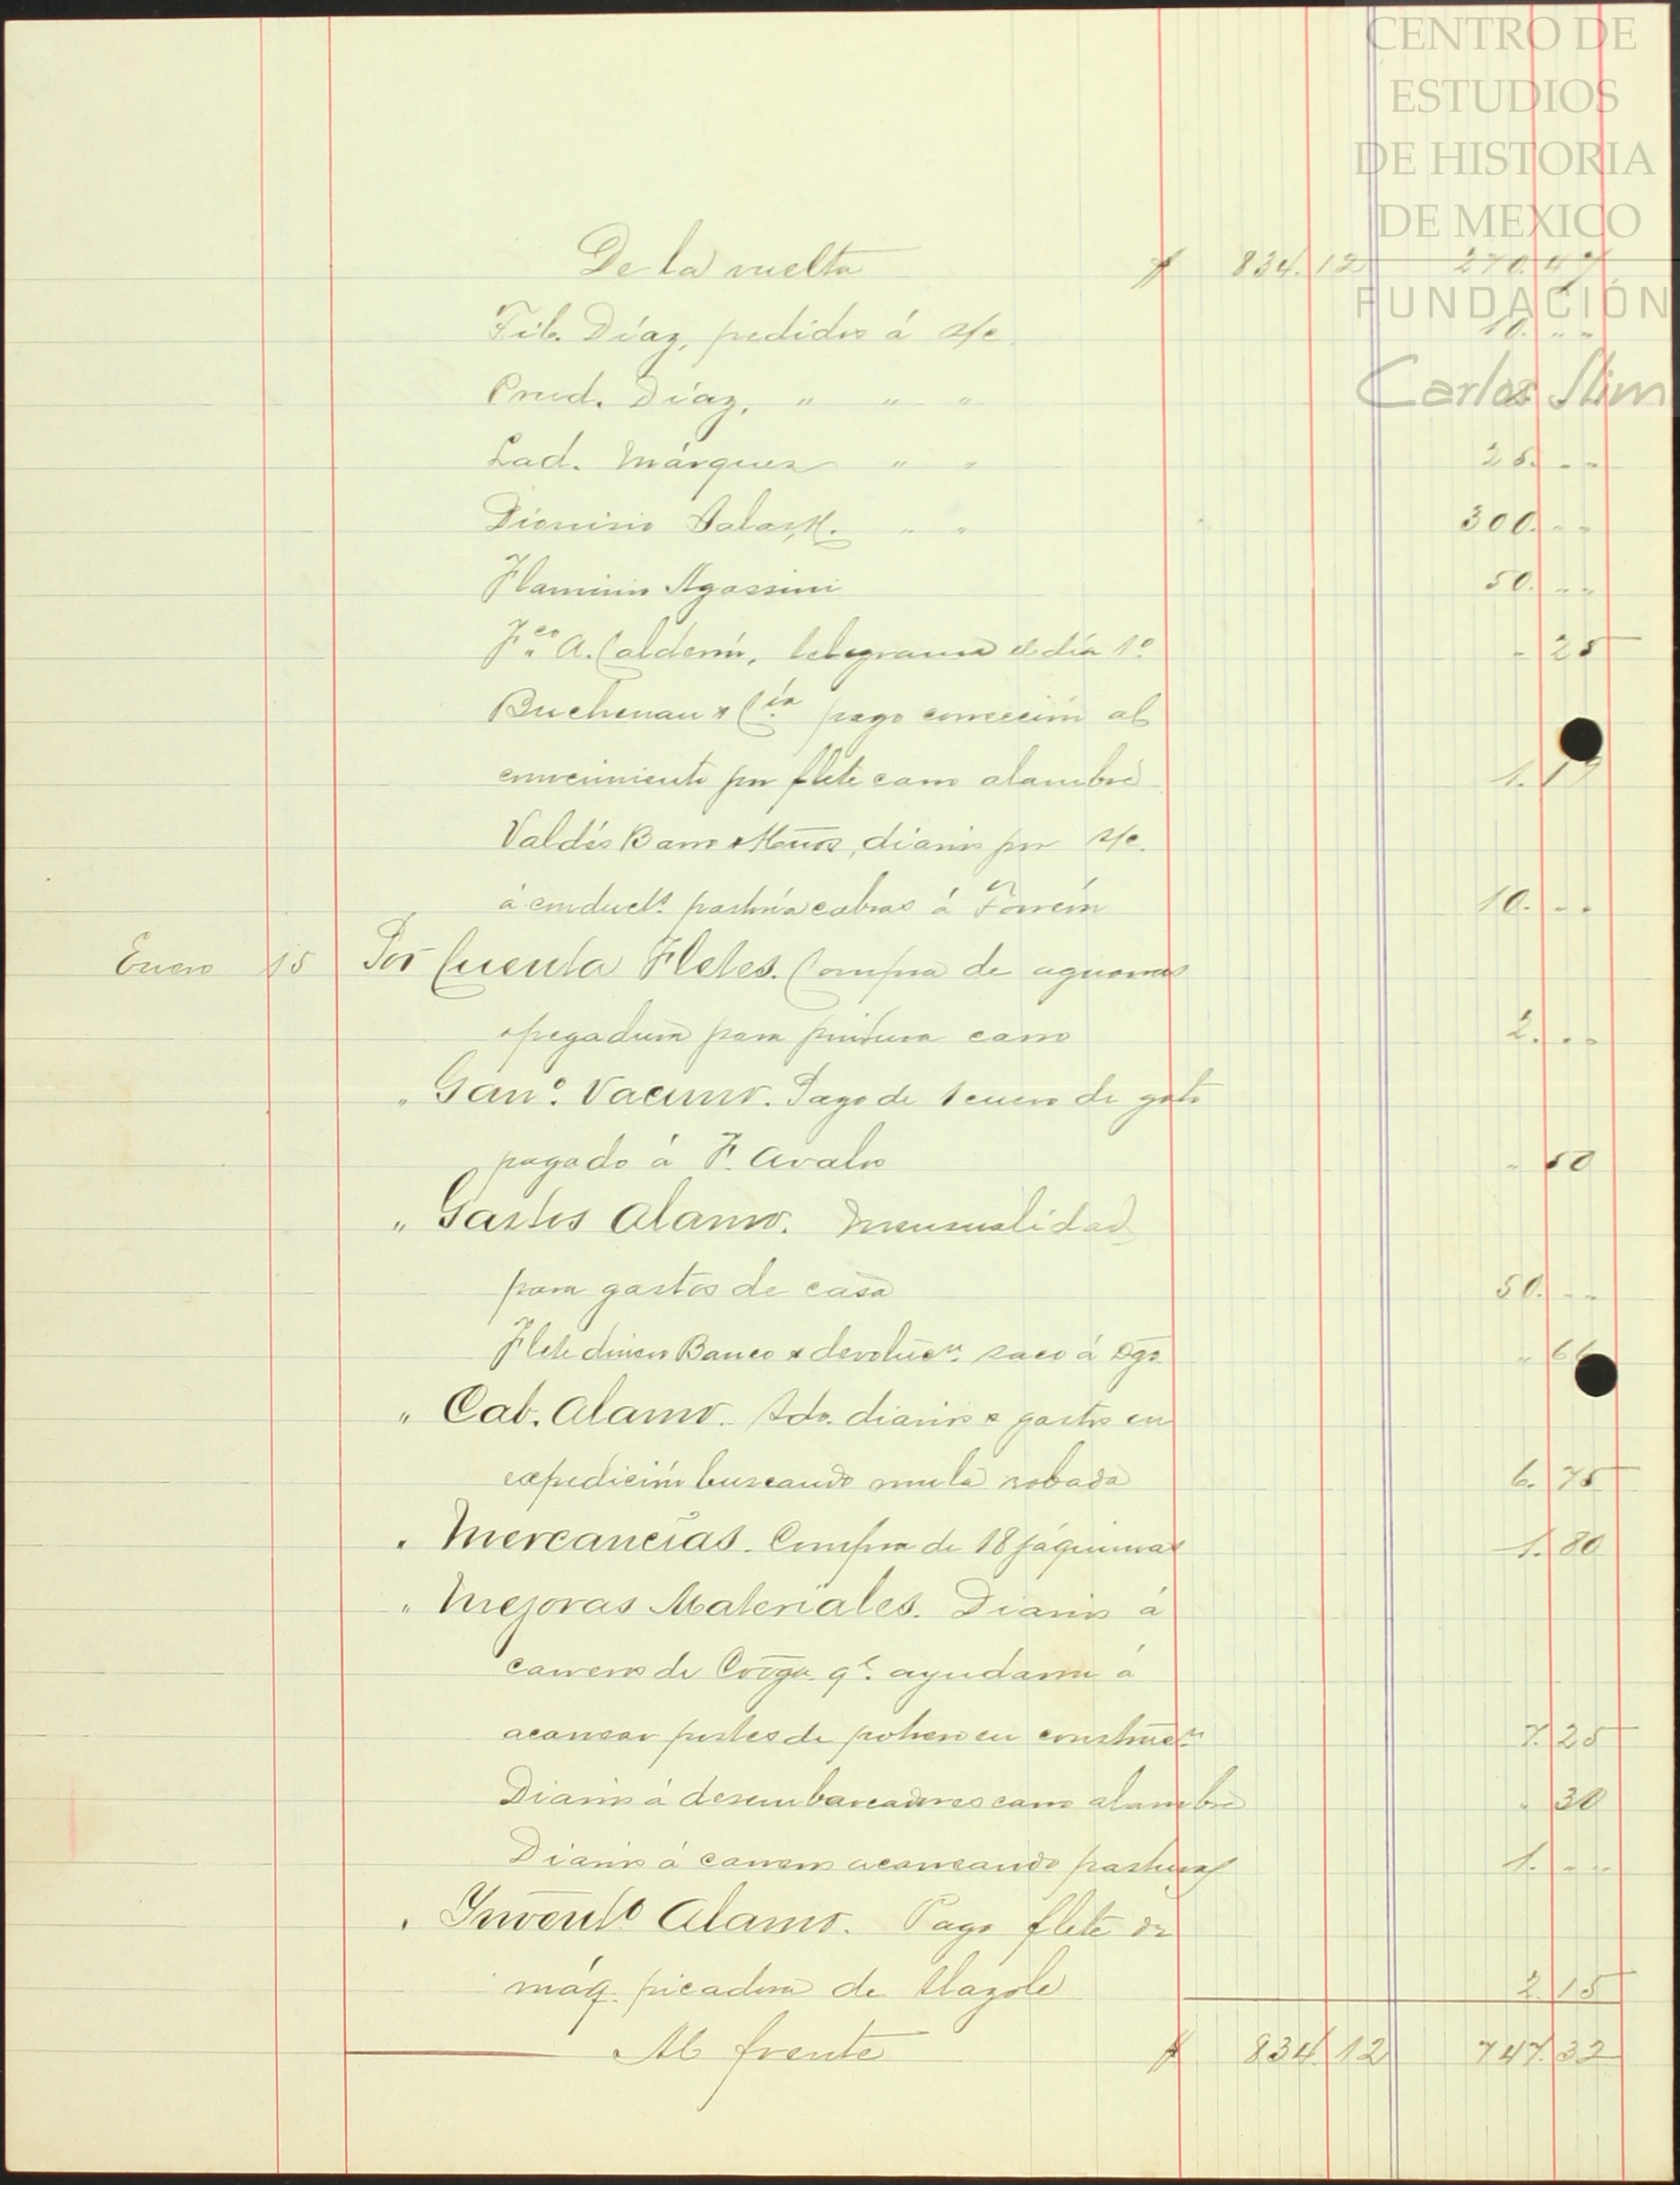 CENTRO DE
ESTUDIOS
DE HISTORIA
DE MEXICO
FUNDACIÓN
Carlos Slim
De la vuelta $ 834. 12 270. 47
Fib. Díaz, pedidos á s/c 10. " "
Prud. Díaz, " " "
Lad. Márquez " " 25. " "
Dionisio Salas, " " 300. " "
Flaminio Agossini 50. " "
Fco. A. Calderón, telegrama el día 1º " 25
Buchenau & Cía pago corrección al
conocimiento por flete carro alambre 1.
Valdés Barro & Hnos, diario por s/c.
á conduct. pastoría cabras á Torreón 10. " "
Enero 15 Por Cuenta Fletes. Compra de aguarras
y pegadura para pintura carro 2. " "
" Gano. Vacuno. Pago de 1 cuero de gato
pagado á F. Avalos " 50
" Gastos Alamo. Mensualidad
para gastos de casa 50. " "
Flete dinero Banco & devolucn. saco á Dgo "
" Cab. Alamo. Sdo. diario & gastos en
expedición buscando mula robada 6. 75
" Mercancías. Compra de 18 jáquimas 1. 80
" Mejoras Materiales. Diario á
carreros de qe. ayudaron á
acarrear postes de potrero en construcn 7. 25
Diario á desembarcadores carro alambre " 30
Diario á carrero acarreando pasturas 1. " "
" Invento Alamo. Pago flete de
máq. picadora de tlazole 2. 15
Al frente $ 834. 12 747. 32